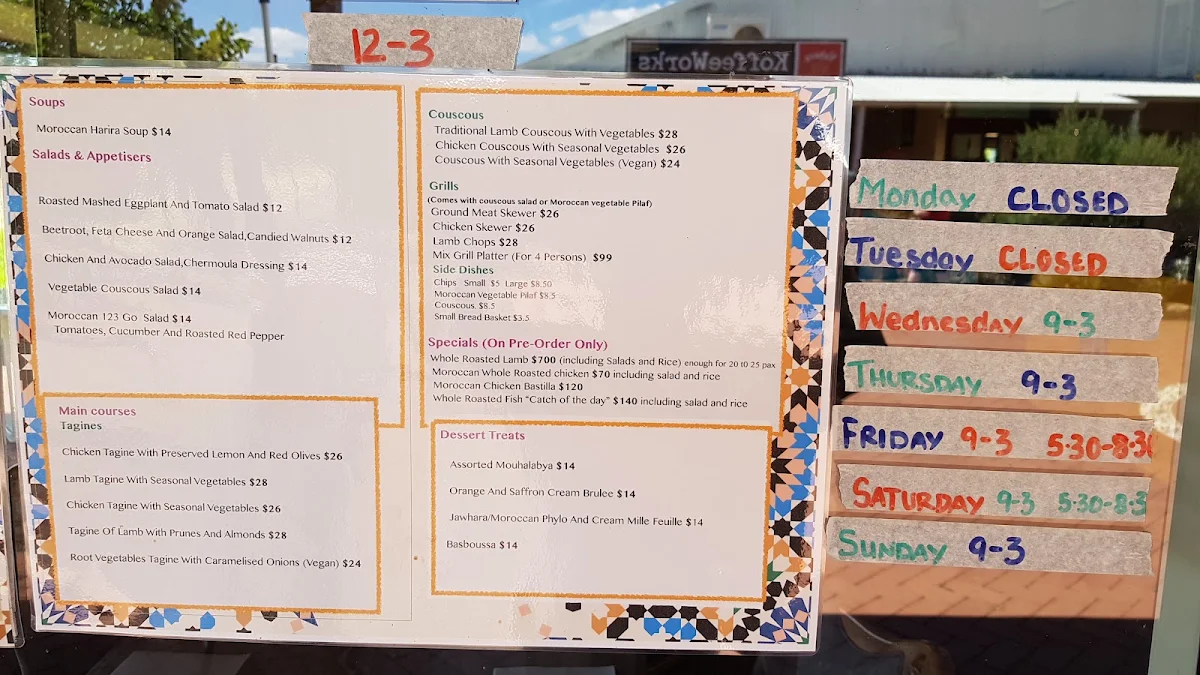 12-3
KoffeeWorks
Soups
Moroccan Harira Soup $14
Salads & Appetisers
Roasted Mashed Eggplant And Tomato Salad $12
Beetroot, Feta Cheese And Orange Salad,Candied Walnuts $12
Chicken And Avocado Salad,Chermoula Dressing $14
Vegetable Couscous Salad $14
Moroccan 123 Go Salad $14
Tomatoes, Cucumber And Roasted Red Pepper
Main courses
Tagines
Chicken Tagine With Preserved Lemon And Red Olives $26
Lamb Tagine With Seasonal Vegetables $28
Chicken Tagine With Seasonal Vegetables $26
Tagine Of Lamb With Prunes And Almonds $28
Root Vegetables Tagine With Caramelised Onions (Vegan) $24
Couscous
Traditional Lamb Couscous With Vegetables $28
Chicken Couscous With Seasonal Vegetables $26
Couscous With Seasonal Vegetables (Vegan) $24
Grills
(Comes with couscous salad or Moroccan vegetable Pilaf)
Ground Meat Skewer $26
Chicken Skewer $26
Lamb Chops $28
Mix Grill Platter (For 4 Persons) $99
Side Dishes
Chips Small $5 Large $8.50
Moroccan Vegetable Pilaf $8.5
Couscous $8.5
Small Bread Basket $3.5
Specials (On Pre-Order Only)
Whole Roasted Lamb $700 (including Salads and Rice) enough for 20 to 25 pax
Moroccan Whole Roasted chicken $70 including salad and rice
Moroccan Chicken Bastilla $120
Whole Roasted Fish “Catch of the day” $140 including salad and rice
Dessert Treats
Assorted Mouhalabya $14
Orange And Saffron Cream Brulee $14
Jawhara/Moroccan Phylo And Cream Mille Feuille $14
Basboussa $14
Monday CLOSED
Tuesday CLOSED
Wednesday 9-3
THURSDAY 9-3
FRIDAY 9-3 5·30-8·30
SATURDAY 9-3 5·30-8·3
SUNDAY 9-3